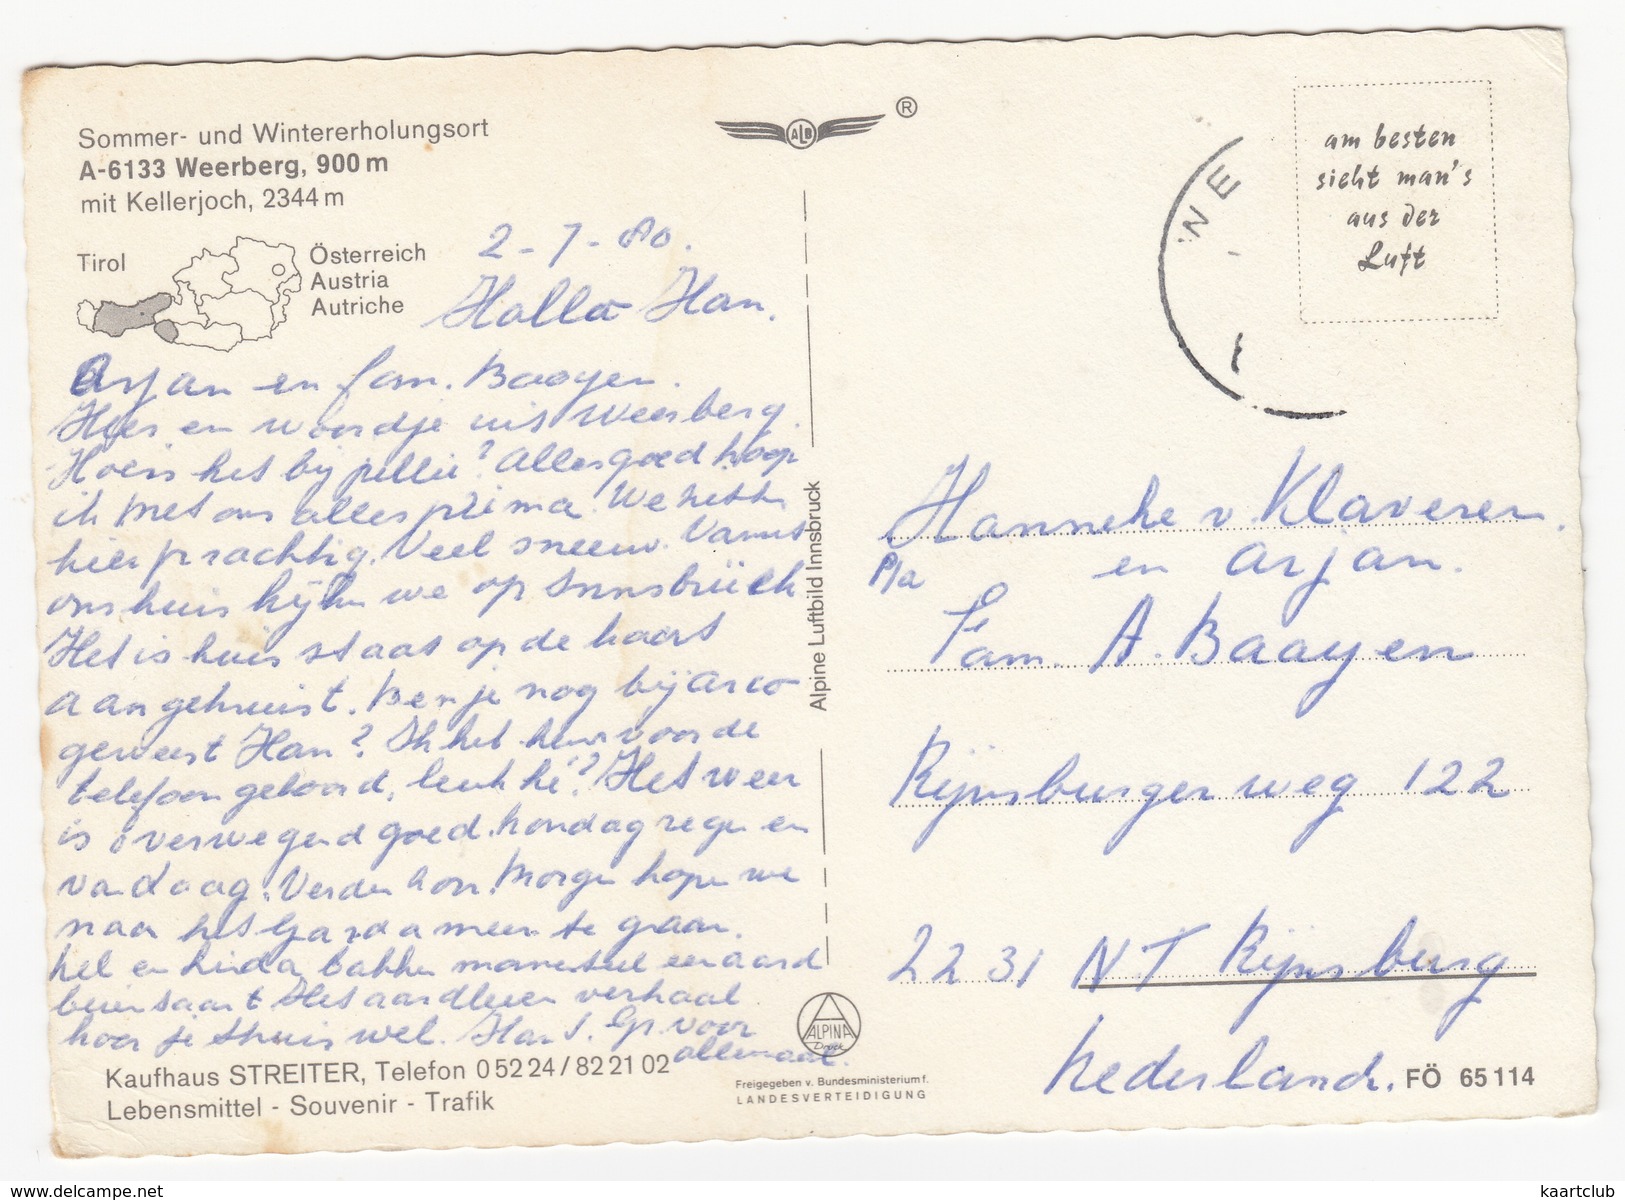 Sommer- und Wintererholungsort
A-6133 Weerberg, 900 m
mit Kellerjoch, 2344 m
Tirol
Österreich
Austria
Autriche
2-7-80.
Hallo Han.
Arjan en fam. Baayen.
Hier en woordje uit Weerberg.
Hoe is het bij jullie? Alles goed hoop
ik met ons alles prima. We hebben
hier prachtig. Veel sneeuw. Vanuit
ons huis kijken we op Innsbrück
Het is huis staat op de kaart
aangekruist. Ben je nog bij arco
geweest Han? Ik heb hem voor de
telefoon gehoord, leuk hè? Het weer
is overwegend goed. Mondag regen en
vandaag. Verder zon. Morgen hopen we
naar het Gardameer te gaan.
en Linda bakken een aard
Het aardbeien verhaal
hoor je thuis wel. Han Gr. voor
allemaal.
Kaufhaus STREITER, Telefon 0 52 24 / 82 21 02
Lebensmittel - Souvenir - Trafik
ALB ®
Alpine Luftbild Innsbruck
ALPINA
Druck
Freigegeben v. Bundesministerium f.
LANDESVERTEIDIGUNG
WE
am besten
sieht man's
aus der
Luft
Hanneke v. Klaveren.
en Arjan.
P/a
Fam. A. Baayen
Rijnsburgerweg 122
2231 NT Rijnsburg
Nederland.
FÖ 65 114
https://www.delcampe.net
kaartclub